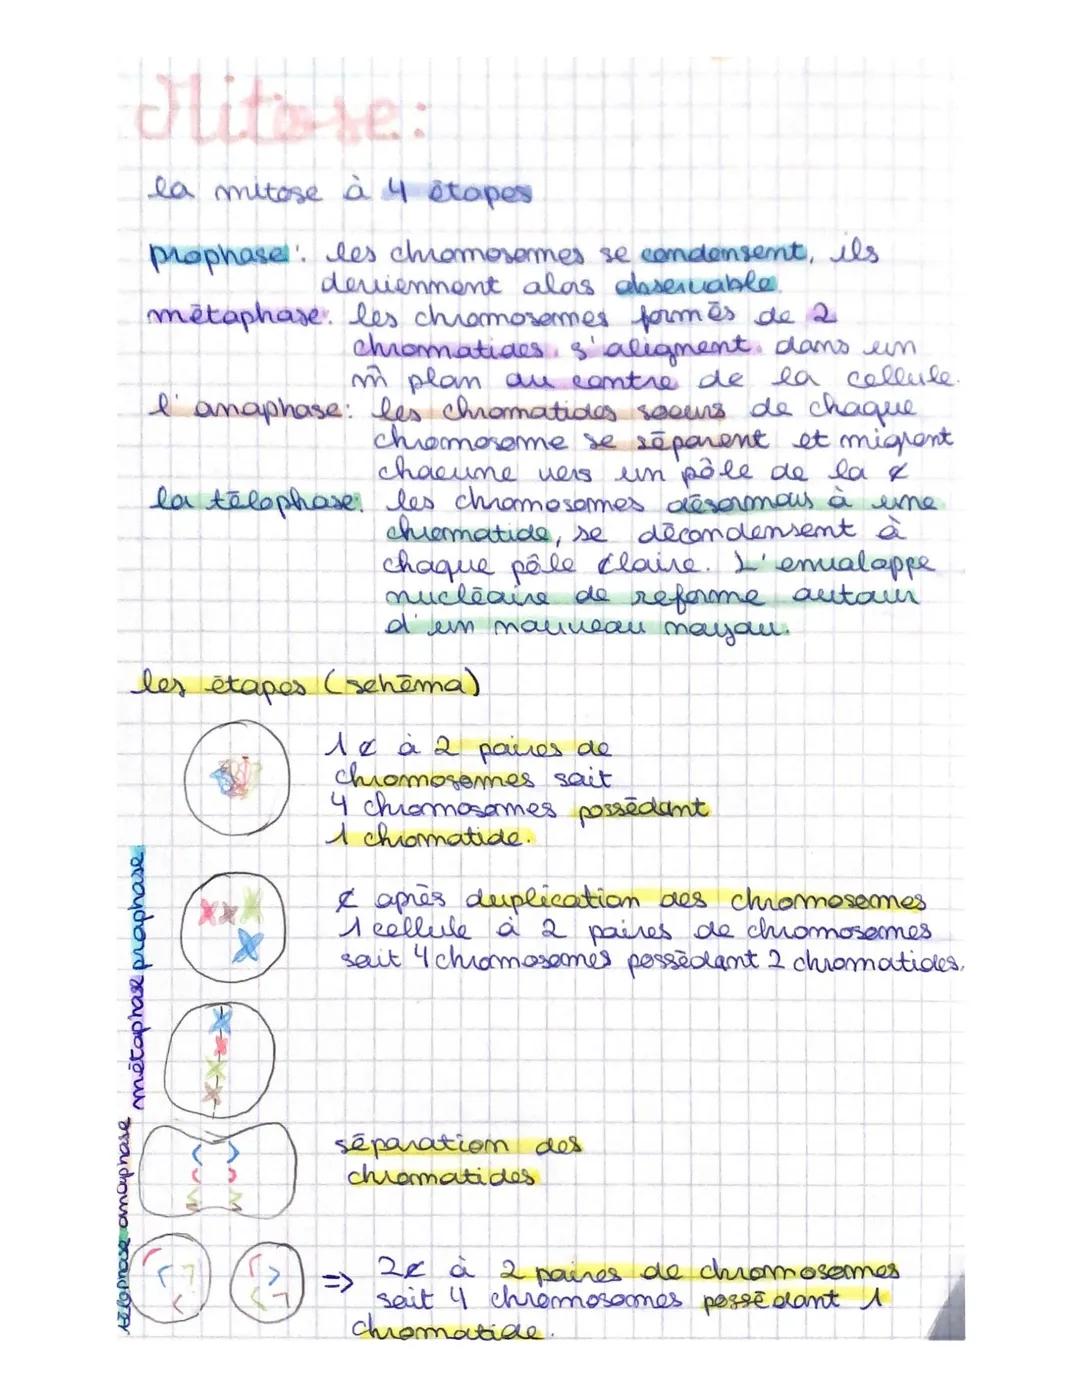 Mitose:
la mitose à 4 étapes
prophase: les chromosomes se condensent, ils
deviennent alors observable.
métaphase: les chromosomes formés de 2
chromatides s'alignent dans un
m̂ plan au centre de la cellule.
l'anaphase: les chromatides soeurs de chaque
chromosome se séparent et migrent
chacune vers un pôle de la ¢
la télophase: les chromosomes désormais à une
chromatide, se décondensent à
chaque pôle claire. L'envalappe
nucléaire de reforme autour
d'un nouveau noyau.
les étapes (schéma)
1 ¢ à 2 paires de
chromosomes soit
4 chromosomes possédant
1 chromatide.
prophase
¢ après duplication des chromosomes
1 cellule à 2 paires de chromosomes
soit 4 chromosomes possédant 2 chromatides.
métaphase
anaphase
séparation des
chromatides
télophase
=> 2¢ à 2 paires de chromosomes
soit 4 chromosomes possédant 1
chromatide.